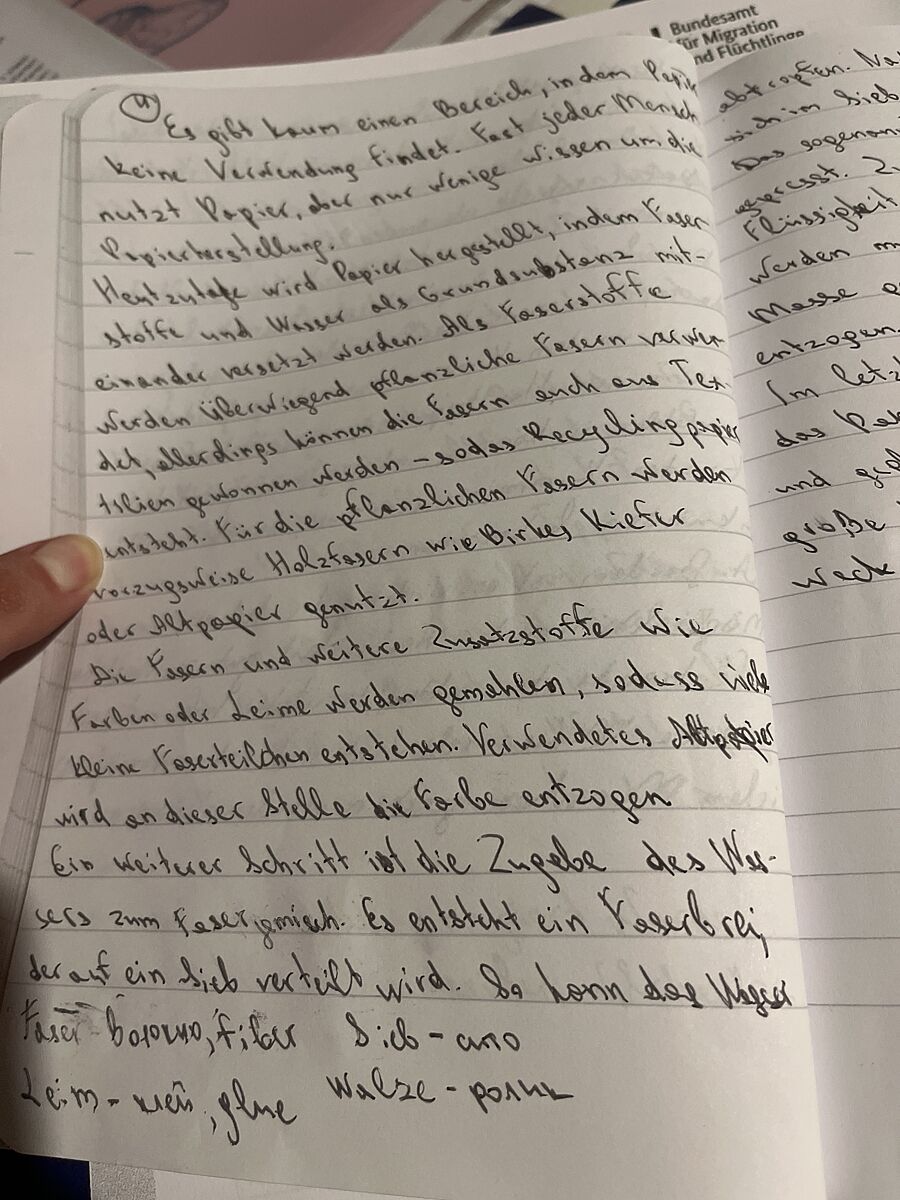 Bundesamt
für Migration
und Flüchtlinge
4
Es gibt kaum einen Bereich, in dem Papier
keine Verwendung findet. Fast jeder Mensch
nutzt Papier, aber nur wenige wissen um die
Papierherstellung.
Heutzutage wird Papier hergestellt, indem Faser-
stoffe und Wasser als Grundsubstanz mit-
einander versetzt werden. Als Faserstoffe
werden überwiegend pflanzliche Fasern verwen-
det, allerdings können die Fasern auch aus Tex-
tilien gewonnen werden - sodas Recyclingpapier
entsteht. Für die pflanzlichen Fasern werden
vorzugsweise Holzfasern wie Birkes Kiefer
oder Altpapier genutzt.
Die Fasern und weitere Zusatzstoffe wie
Farben oder Leime werden gemahlen, sodass viele
kleine Faserteilchen entstehen. Verwendetes Altpapier
wird an dieser Stelle die Farbe entzogen
Ein weiterer Schritt ist die Zugabe des Was-
sers zum Fasergemisch. Es entsteht ein Faserbrei,
der auf ein Sieb verteilt wird. So kann das Wasser
Faser - волокно, fiber Sieb - сито
Leim - клей, glue Walze - ролик
abtropfen. Na
sich im Sieb
Das sogenan
gepresst. Zu
Flüssigkeit
werden m
Masse
entzogen.
Im letz
das Pa
und
große